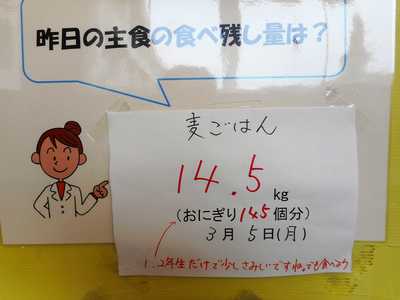 昨日の主食の食べ残し量は？
麦ごはん
14.5
kg
(おにぎり145個分)
3月 5日(月)
1、2年生だけで少しさみしいですね。でも食べよう